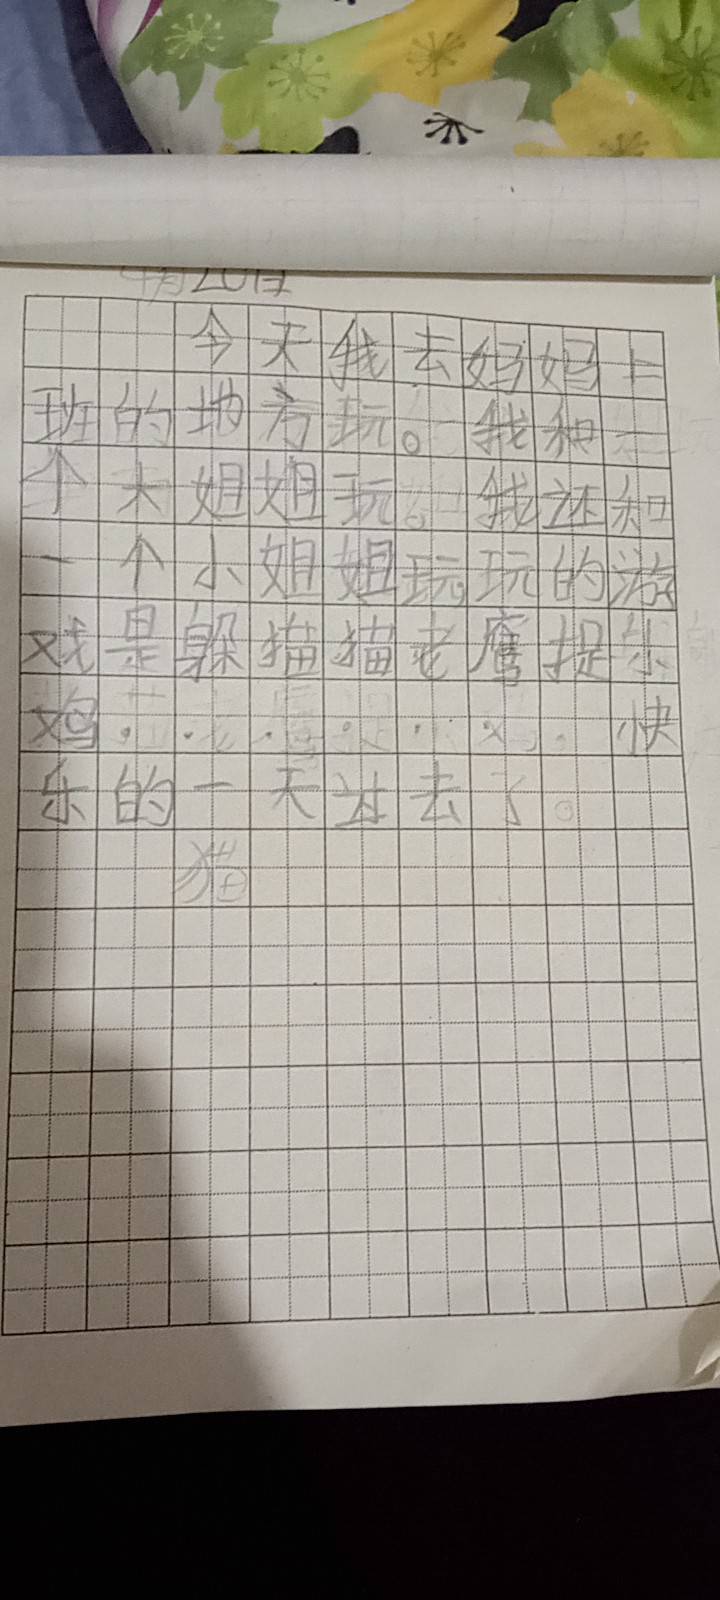 4月20日
今天我去妈妈上
班的地方玩。我和二
个大姐姐玩。我还和
一个小姐姐玩。玩的游
戏是躲猫猫老鹰捉小
鸡······快
乐的一天过去了。
猫